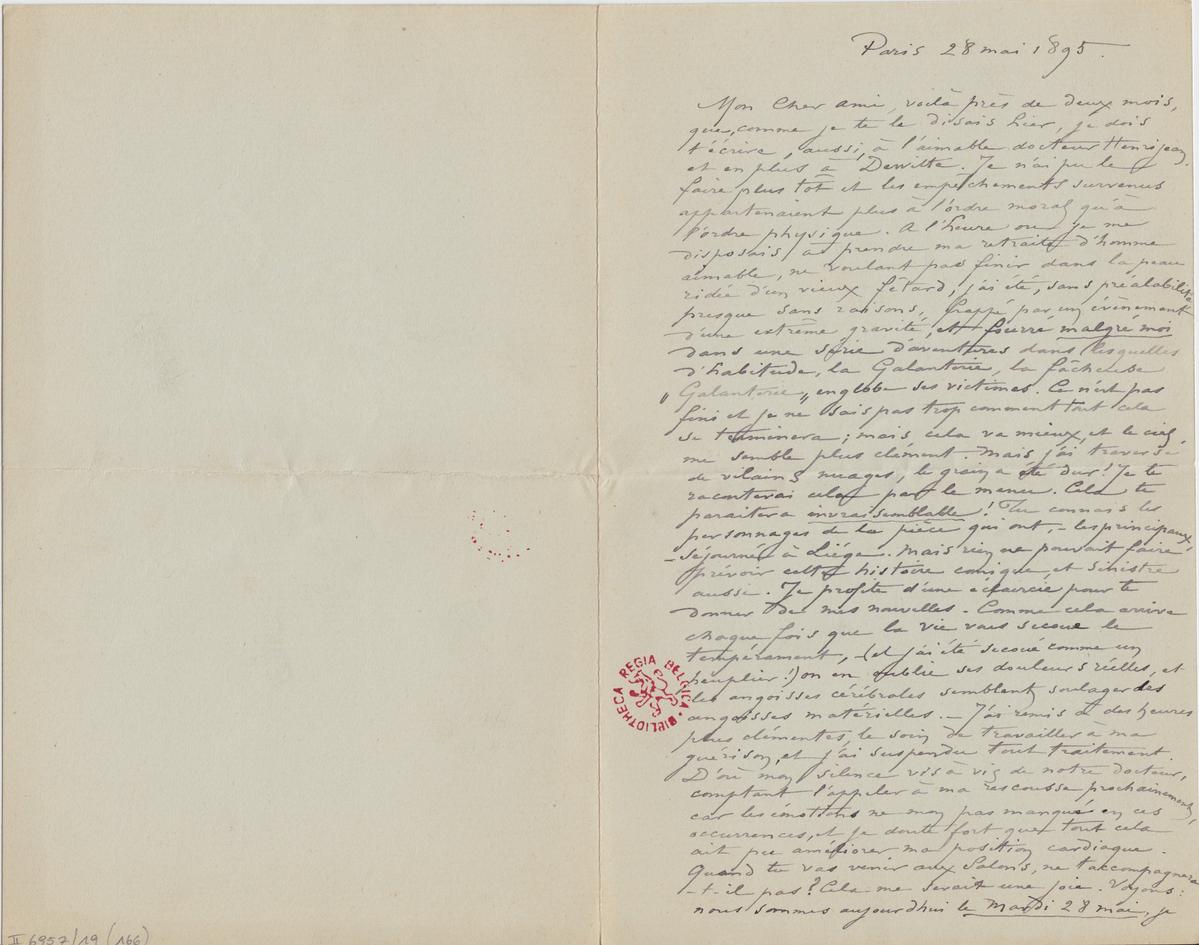 Paris 28 mai 1895.
Mon Cher ami, voilà près de deux mois,
que, comme je te le disais hier, je dois
t'écrire, aussi, à l'aimable docteur Henrijean
et en plus à Dewitte. Je n'ai pu le
faire plus tôt et les empêchements survenus
appartenaient plus à l'ordre moral qu'à
l'ordre physique. A l'heure ou je me
disposais, à prendre ma retraite d'homme
aimable, ne voulant pas finir dans la peau
ridée d'un vieux fêtard, j'ai été, sans préalabilité
presque sans raisons, frappé par un évènement
d'une extrême gravité, et fourré malgré moi
dans une série d'aventures dans lesquelles
d'habitude, la Galanterie, la fâcheuse
„Galanterie„ englobe ses victimes. Ce n'est pas
fini et je ne sais pas trop comment tout cela
se terminera ; mais cela va mieux, et le ciel
me semble plus clément. Mais j'ai traversé
de vilains nuages, le grain a été dur! Je te
raconterai cela par le menu. Cela te
paraitera invraisemblable! Tu connais les
personnages de la pièce qui ont, - les principaux,
- séjourné à Liège. Mais rien ne pouvait faire
prévoir cette histoire comique et sinistre
aussi. Je profite d'une éclaircie pour te
donner de mes nouvelles. Comme cela arrive
chaque fois que la vie vous secoue le
tempérament, - (et j'ai été secoué comme un
peuplier!) on en oublie ses douleurs réelles, et
les angoisses cérébrales semblent soulager des
angoisses matérielles. - J'ai remis à des heures
plus clémentes, le soin de travailler à ma
guérison, et j'ai suspendu tout traitement.
D'où mon silence vis à vis de notre docteur,
comptant l'appeler à ma rescousse prochainement,
car les émotions ne m'on pas manqué en ces
occurrences, et je doute fort que tout cela
ait pu améliorer ma position cardiaque.
Quand tu vas venir aux Salons, ne t'accompagnera
-t-il pas? Cela me serait une joie. Voyons:
nous sommes aujourd'hui le Mardi 28 mai, je
BIBLIOTHECA REGIA BELGICA
II 6957/19 (166)